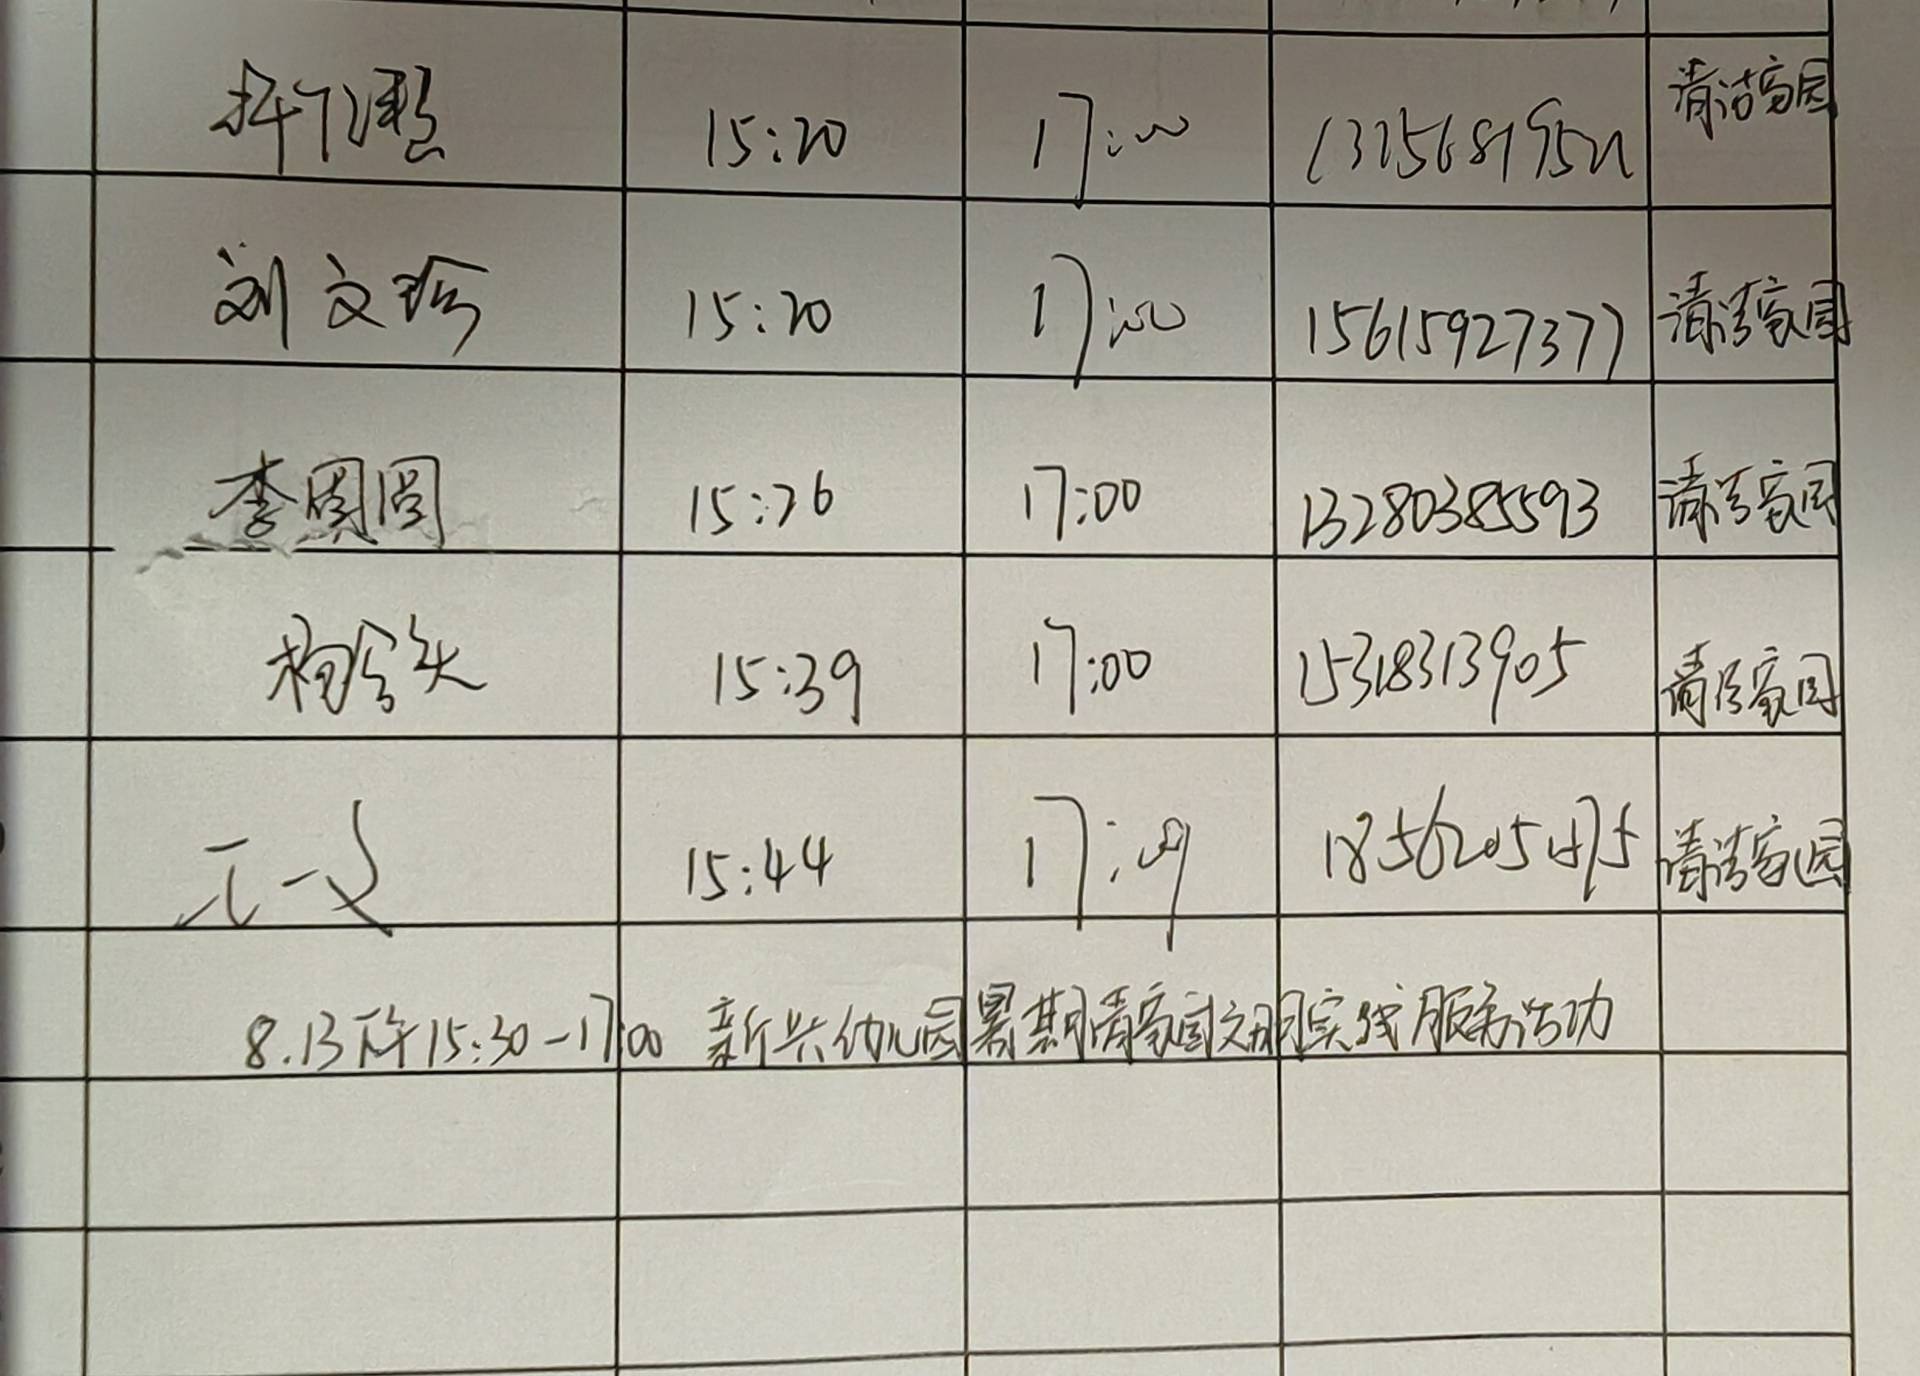 15:20 17:00 清洁家园
刘文珍 15:20 17:00 15615927377 清洁家园
李圆圆 15:26 17:00 13280385593 清洁家园
15:39 17:00 15318313905 清洁家园
15:44 17:09 清洁家园
8.13下午15:30-17:00 新兴幼儿园暑期清家园文明实践服务活动